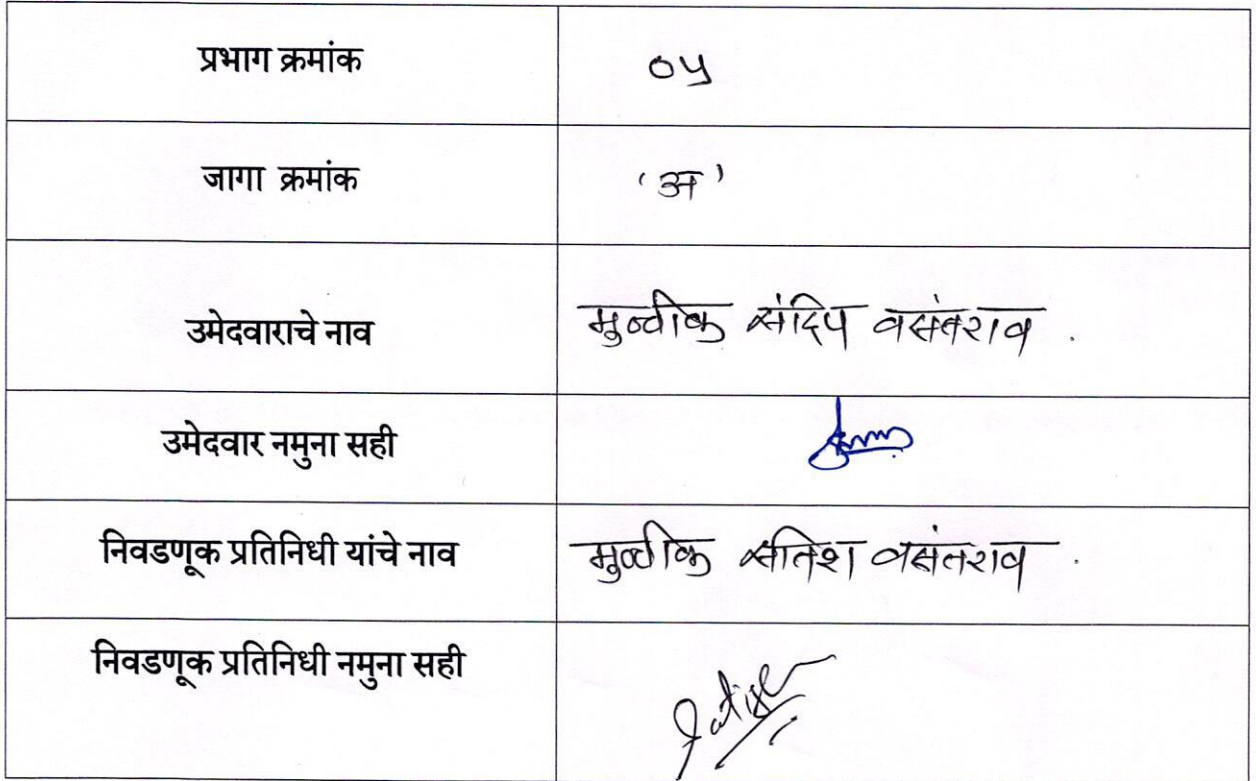 प्रभाग क्रमांक ०५
जागा क्रमांक ‘अ’
उमेदवाराचे नाव मुळीक संदिप वसंतराव .
उमेदवार नमुना सही
निवडणूक प्रतिनिधी यांचे नाव मुळीक सतिश वसंतराव .
निवडणूक प्रतिनिधी नमुना सही